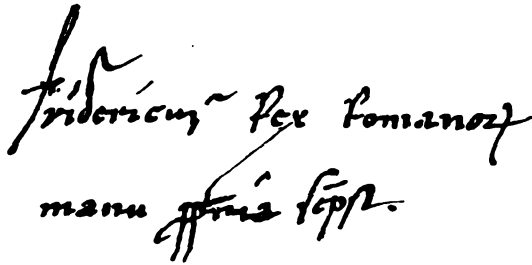 Fridericus Rex Romanor̄
manu ppria scpst.